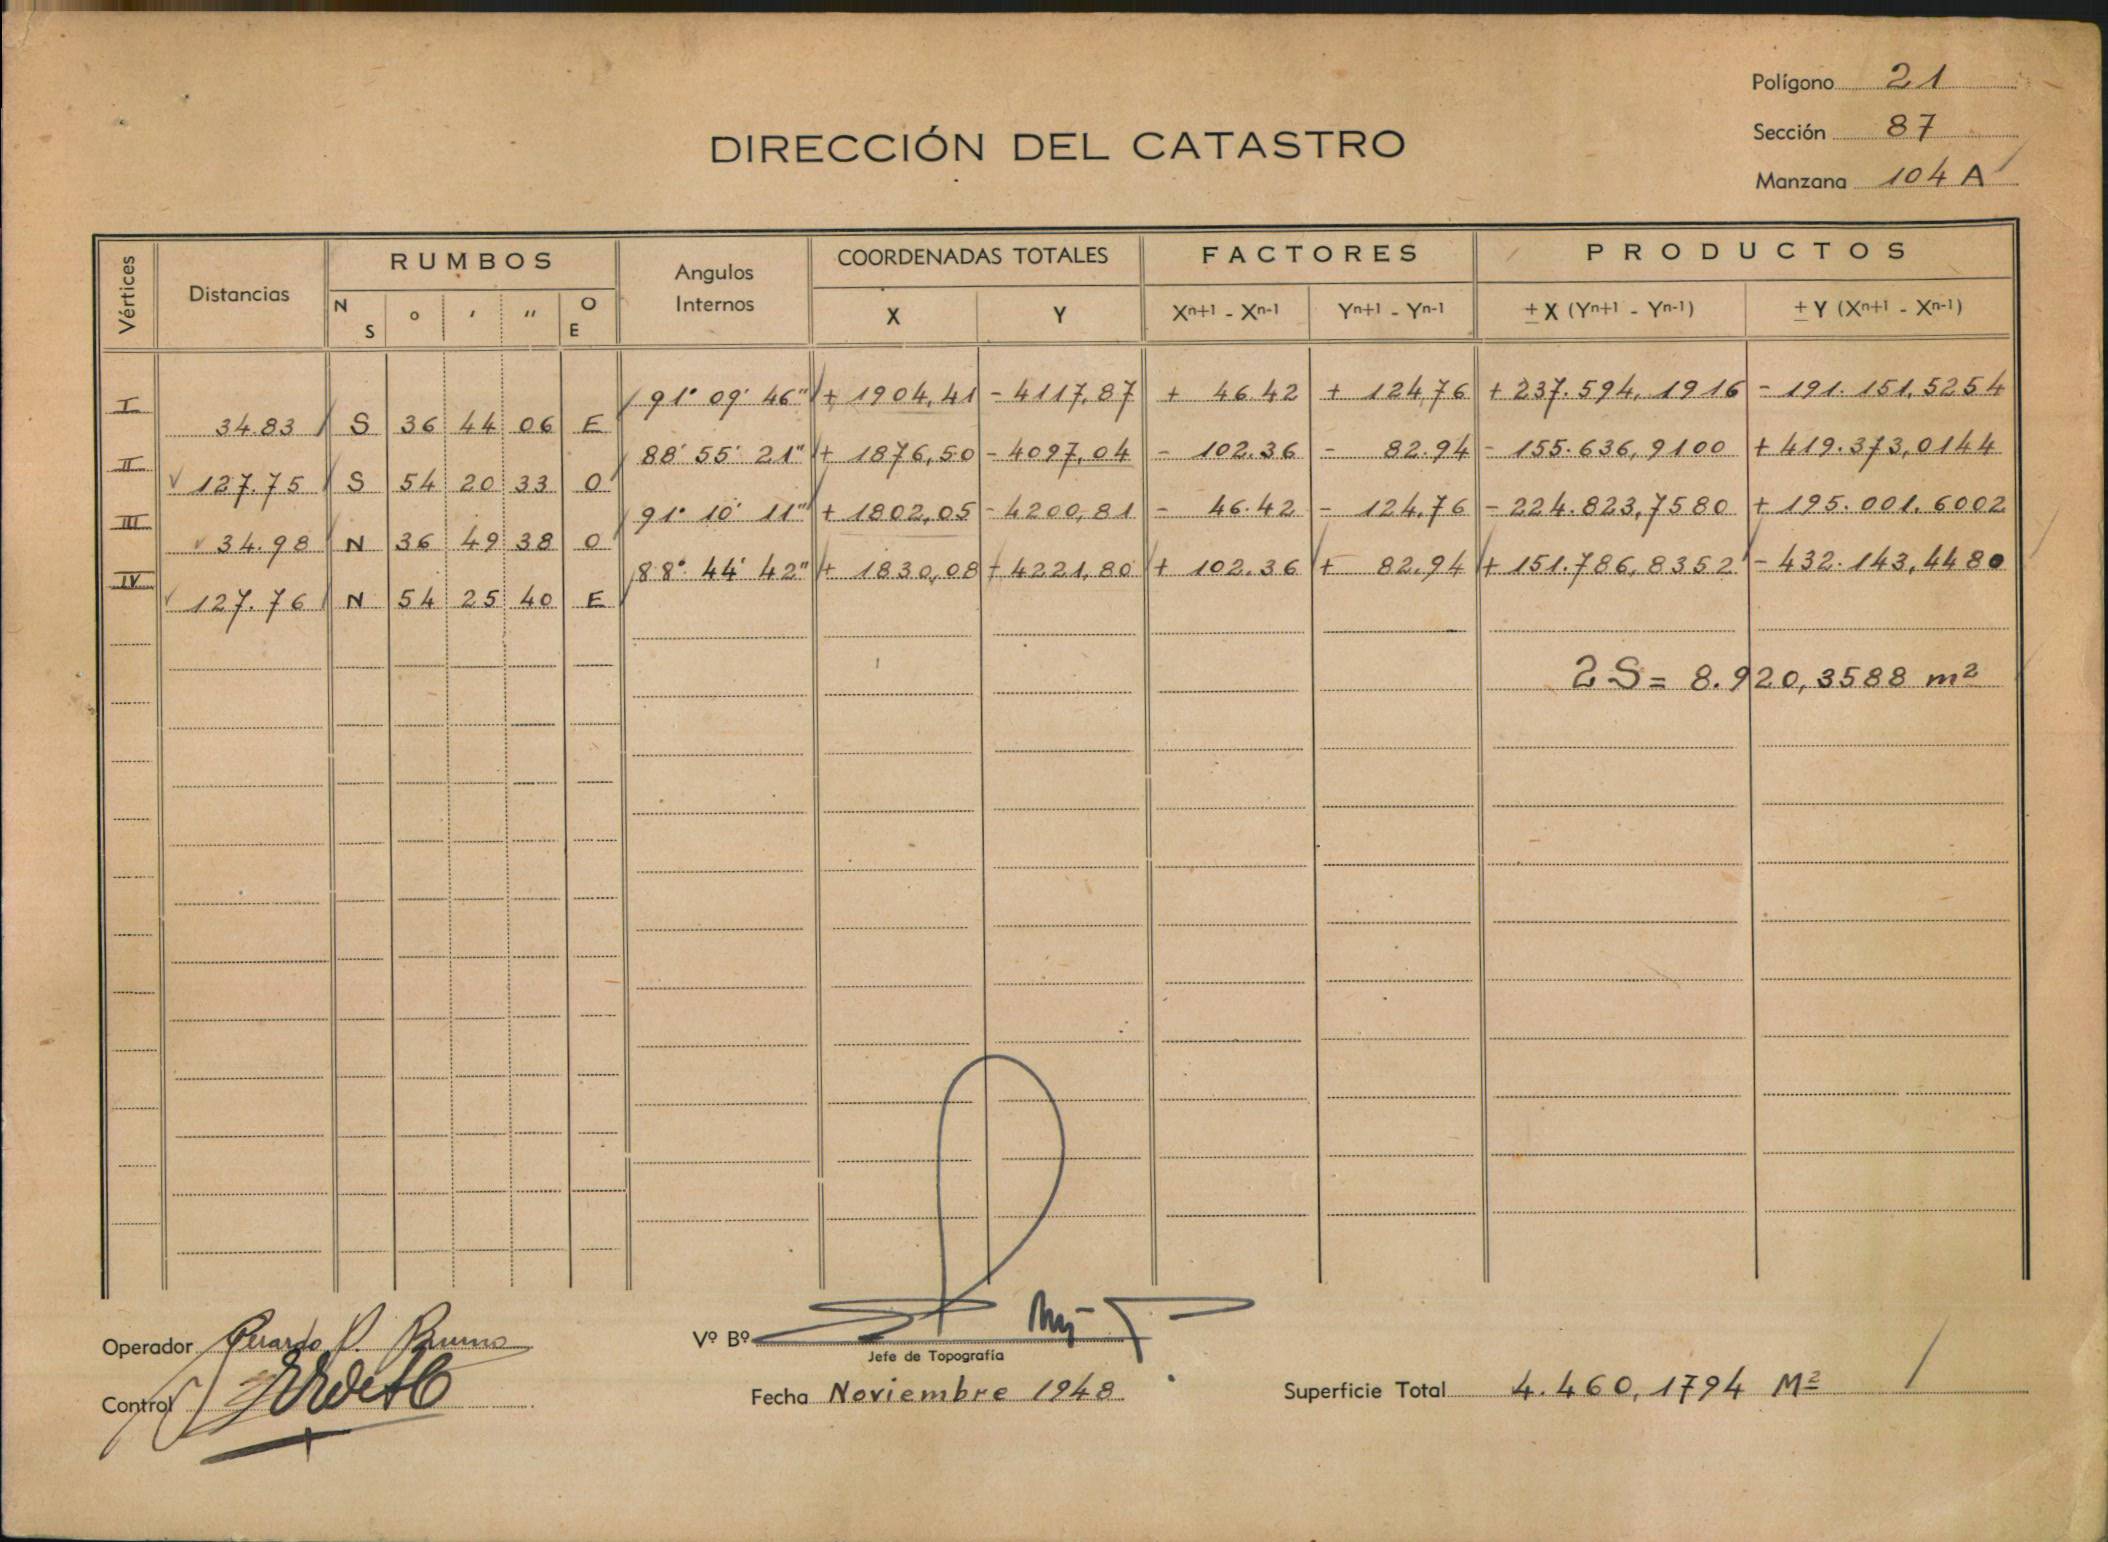 Polígono 21
DIRECCIÓN DEL CATASTRO
Sección 87
Manzana 104 A
Vértices Distancias RUMBOS Angulos Internos COORDENADAS TOTALES FACTORES PRODUCTOS
N S ° ' " O E X Y Xn+1 - Xn-1 Yn+1 - Yn-1 ± X (Yn+1 - Yn-1) ± Y (Xn+1 - Xn-1)
I 91° 09' 46" + 1904,41 - 4117,87 + 46.42 + 124,76 + 237.594,1916 - 191.151,5254
34.83 S 36 44 06 E
II 88° 55' 21" + 1876,50 - 4097,04 - 102.36 - 82.94 - 155.636,9100 + 419.373,0144
127.75 S 54 20 33 O
III 91° 10' 11" + 1802,05 - 4200,81 - 46.42 - 124,76 - 224.823,7580 + 195.001.6002
34.98 N 36 49 38 O
IV 88° 44' 42" + 1830,08 - 4221,80 + 102.36 + 82.94 + 151.786,8352 - 432.143,4480
127.76 N 54 25 40 E
2 S = 8.920,3588 m²
Operador Gerardo P. Bruno
Vº Bº
Jefe de Topografía
Control
Fecha Noviembre 1948
Superficie Total 4.460,1794 M²